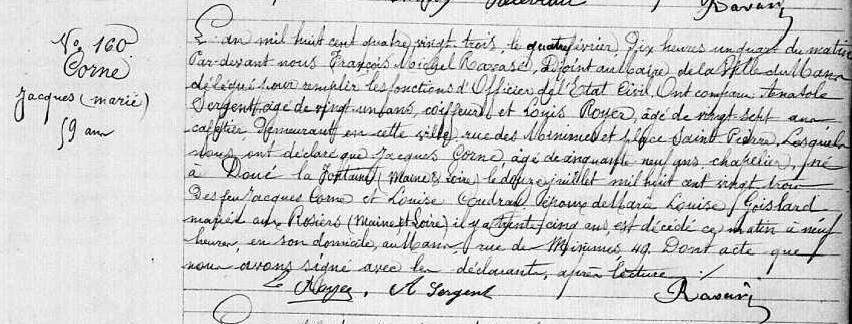 Ravari
No. 160
Corne
Jacques (marié)
59 ans
L'an mil huit cent quatre vingt-trois, le quatre février, Dix heures un quart du matin
Par-devant nous François Michel Ravasé, Adjoint au Maire de la Ville du Mans
délégué pour remplir les fonctions d'Officier de l'Etat Civil. Ont comparu Anatole
Sergent, âgé de vingt-un ans, coiffeur et Louis Royer, âgé de vingt sept ans
cafetier, Demeurant en cette ville, rue des Minimes et place Saint Pierre, Lesquels
nous ont déclaré que Jacques Corne, âgé de cinquante neuf ans chapelier, né
à Doué la Fontaine (Maine & Loire) le douze juillet mil huit cent vingt trois
Des feu Jacques Corne et Louise Coudrai Epoux de Marie Louise Goislard
mariés aux Rosiers (Maine et Loire) il y a trente cinq ans, est décédé ce matin à neuf
heures, en son domicile, au Mans, rue de Minimes 49. Dont acte que
nous avons signé avec les déclarants, après lecture ./.
L Royer, A Sergent